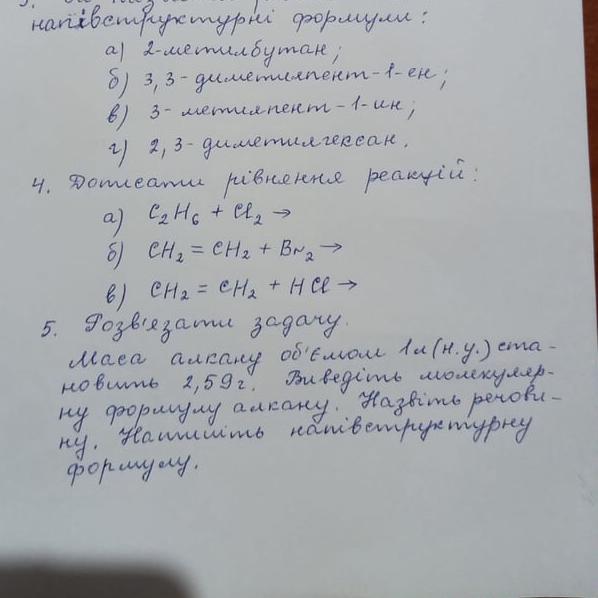 напівструктурні формули:
а) 2-метилбутан;
б) 3,3-диметилпент-1-ен;
в) 3-метилпент-1-ин;
г) 2,3-диметилгексан.
4. Дописати рівняння реакцій:
а) C₂H₆ + Cl₂ →
б) CH₂ = CH₂ + Br₂ →
в) CH₂ = CH₂ + HCl →
5. Розв'язати задачу.
Маса алкану об'ємом 1л (н.у.) ста-
новить 2,59г. Виведіть молекуляр-
ну формулу алкану. Назвіть речови-
ну. Напишіть напівструктурну
формулу.